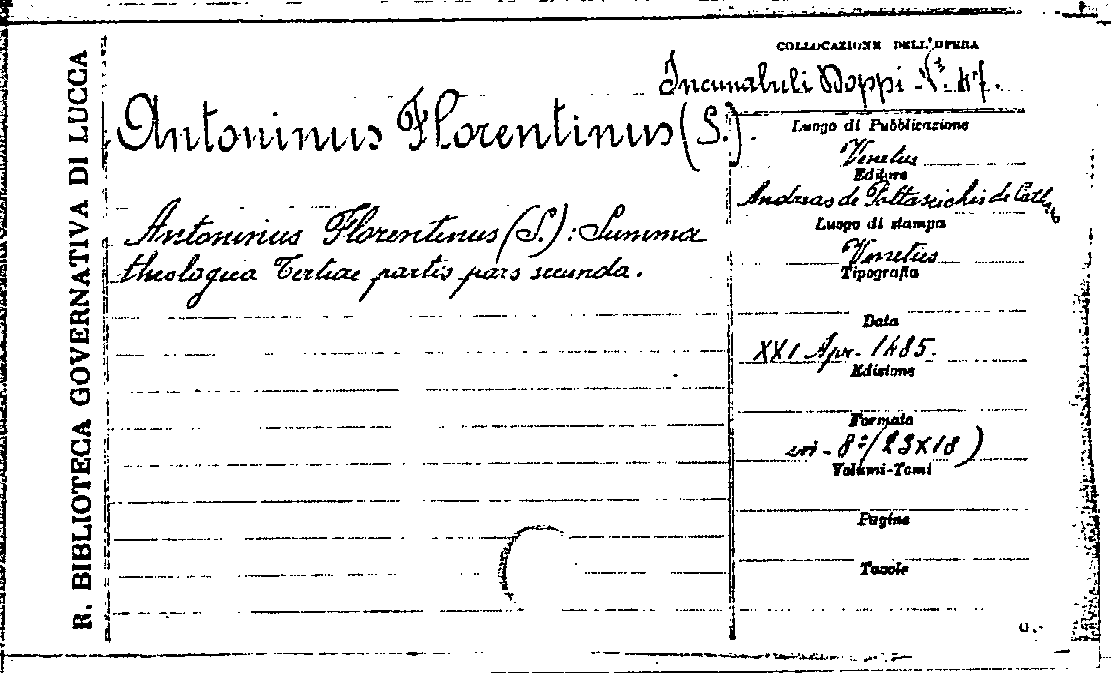 R. BIBLIOTECA GOVERNATIVA DI LUCCA
COLLOCAZIONE DELL'OPERA
Incunabuli Doppi N. 47.
Antoninus Florentinus (S.).
Antoninus Florentinus (S.): Summa
theologica Tertiae partis pars secunda.
Luogo di Pubblicazione
Venetus
Editore
Andreas de Paltascichis de
Luogo di stampa
Venetus
Tipografia
Data
XXI Apr. 1485.
Edizione
Formato
in-8º (23x18)
Volumi-Tomi
Pagine
Tavole